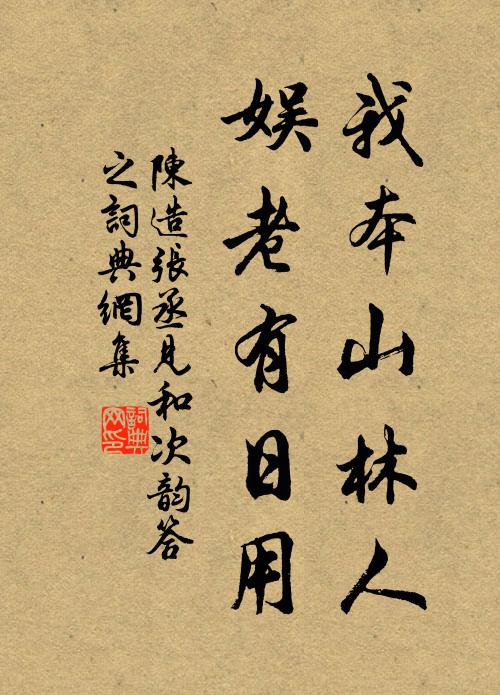 我本山林人
娛老有日用
陳造張丞見和次韵答
之詞典網集
詞典网印